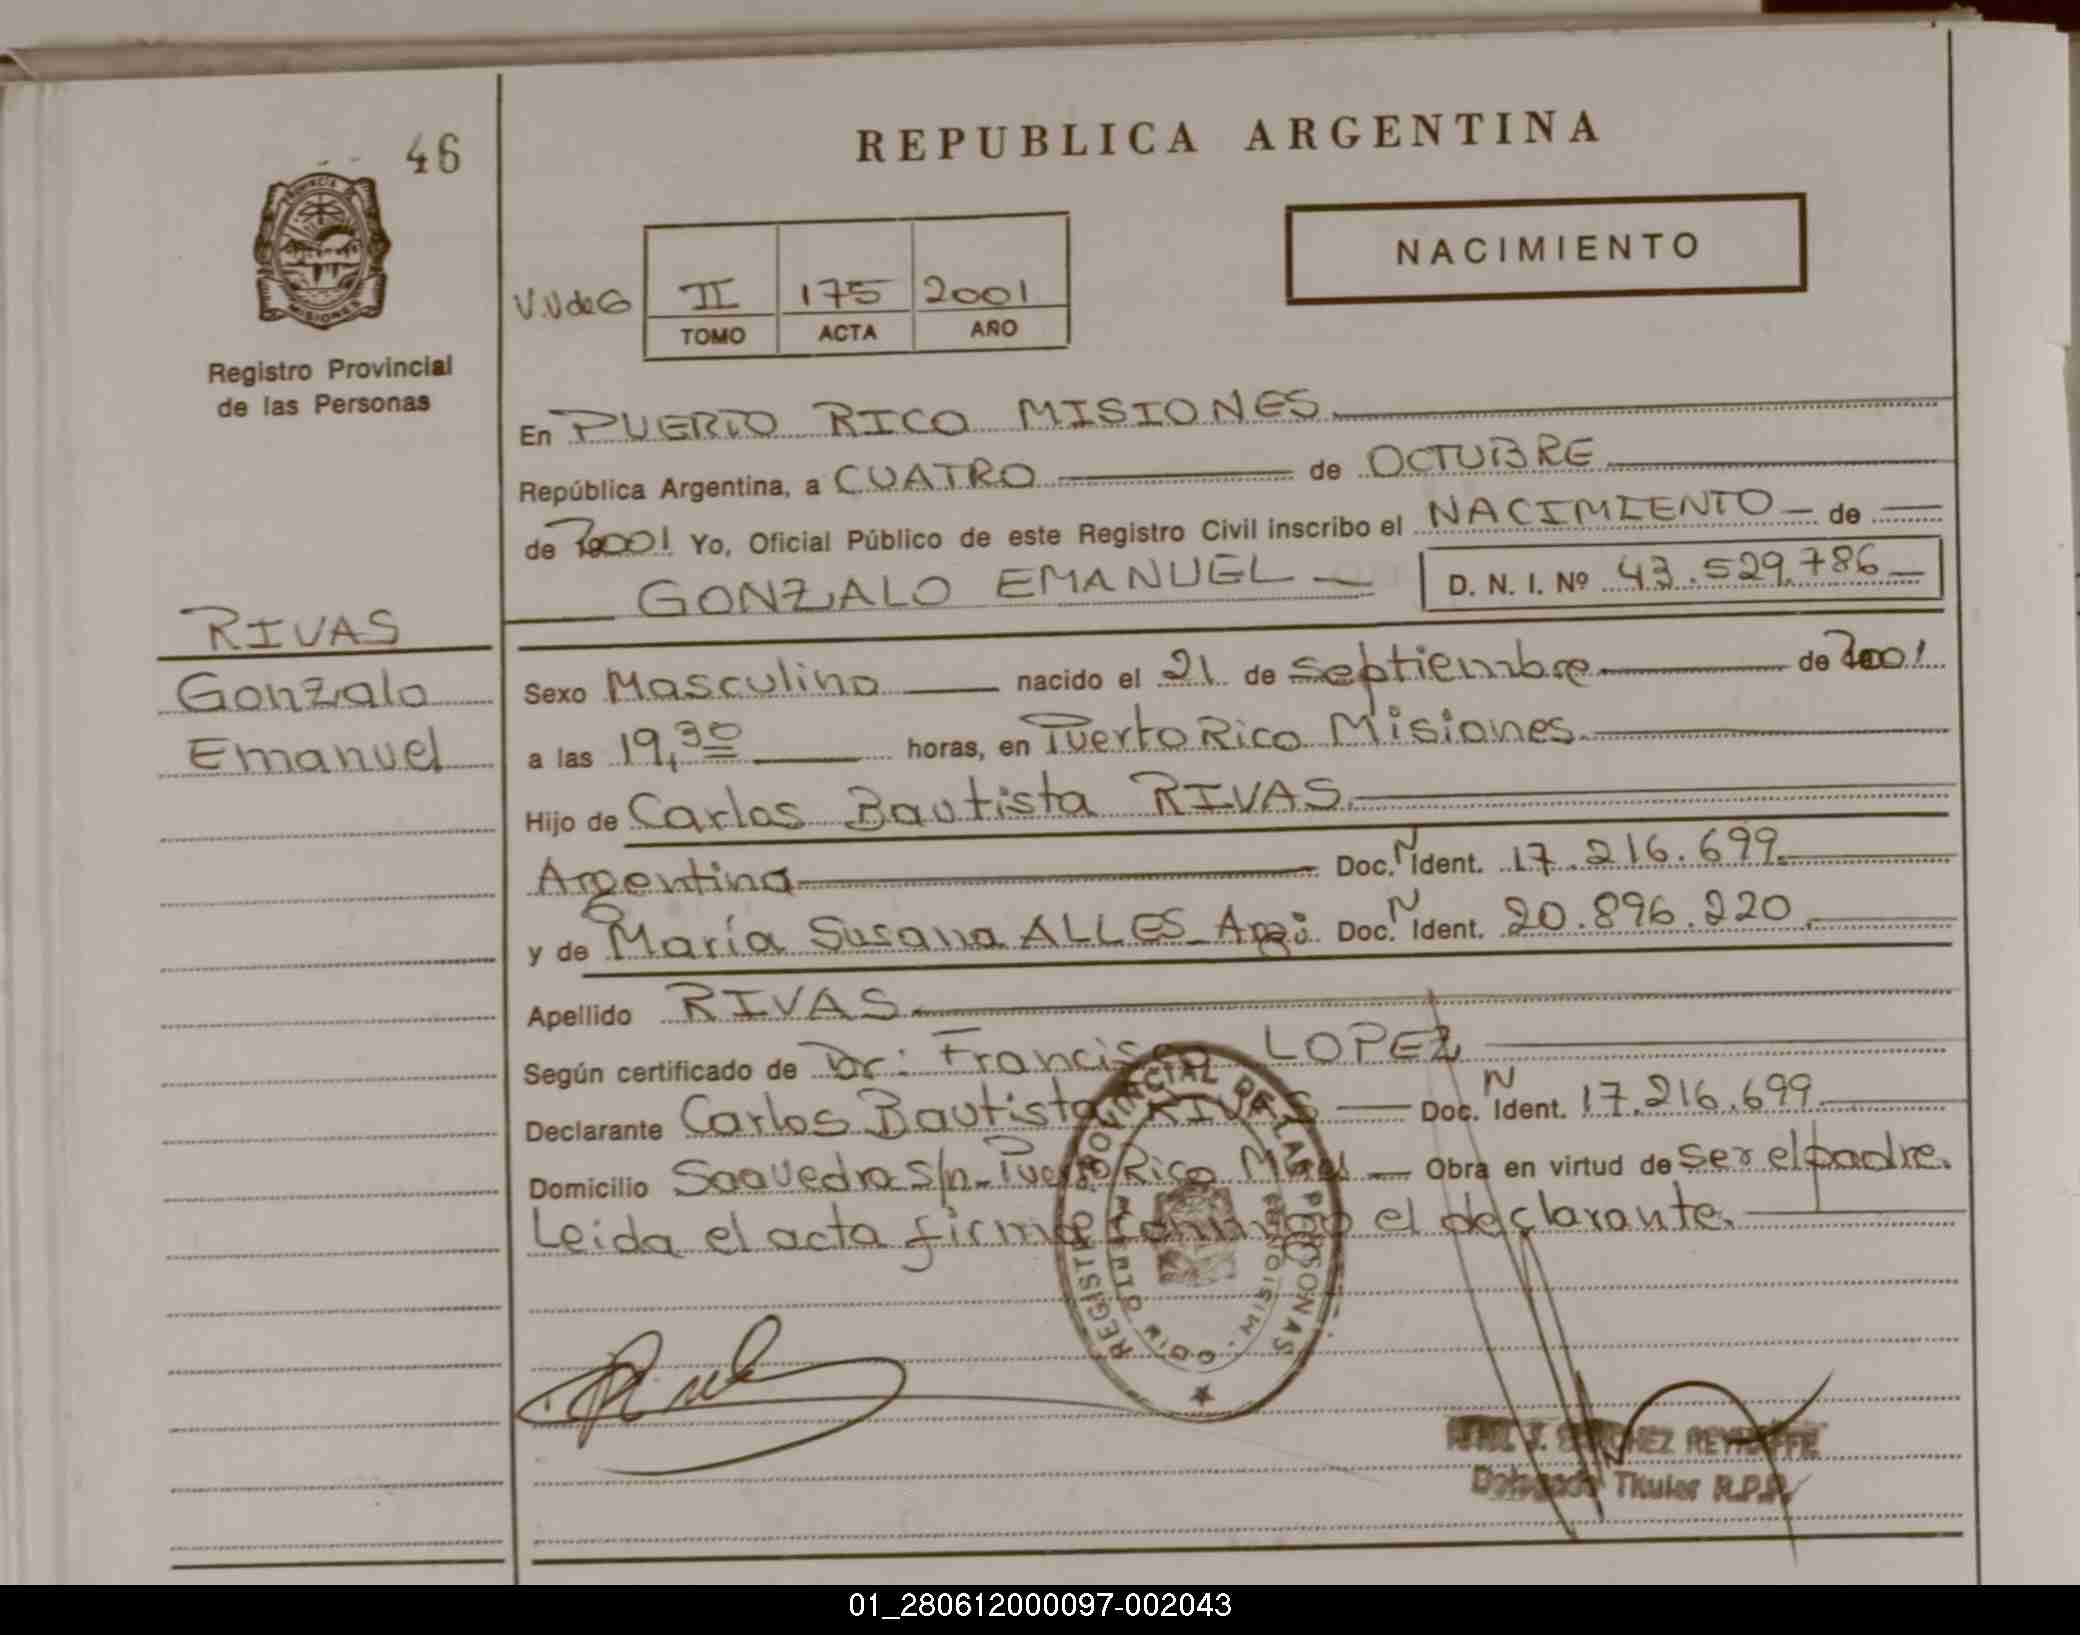 46
REPUBLICA ARGENTINA
NACIMIENTO
PROVINCIA DE
MISIONES
Registro Provincial
de las Personas
V.V de G
II 175 2001
TOMO ACTA AÑO
En PUERTO RICO MISIONES
República Argentina, a CUATRO de OCTUBRE
de 2001 Yo, Oficial Público de este Registro Civil inscribo el NACIMIENTO de
GONZALO EMANUEL D. N. I. Nº 43.529.786
RIVAS
Gonzalo
Emanuel
Sexo Masculino nacido el 21 de septiembre de 2001
a las 19,30 horas, en Puerto Rico Misiones
Hijo de Carlos Bautista RIVAS
Argentina Doc. N Ident. 17.216.699
y de María Susana ALLES Arg: Doc. N Ident. 20.896.220
Apellido RIVAS
Según certificado de Dr: Francisco LOPEZ
Declarante Carlos Bautista RIVAS Doc. N Ident. 17.216.699
Domicilio Saavedra s/n- Puerto Rico Mnes Obra en virtud de ser el padre.
Leida el acta firma conmigo el declarante.
REGISTRO PROVINCIAL DE LAS PERSONAS
PUERTO RICO MISIONES
J. SANCHEZ
Delegado Titular R.P.P.
01_280612000097-002043